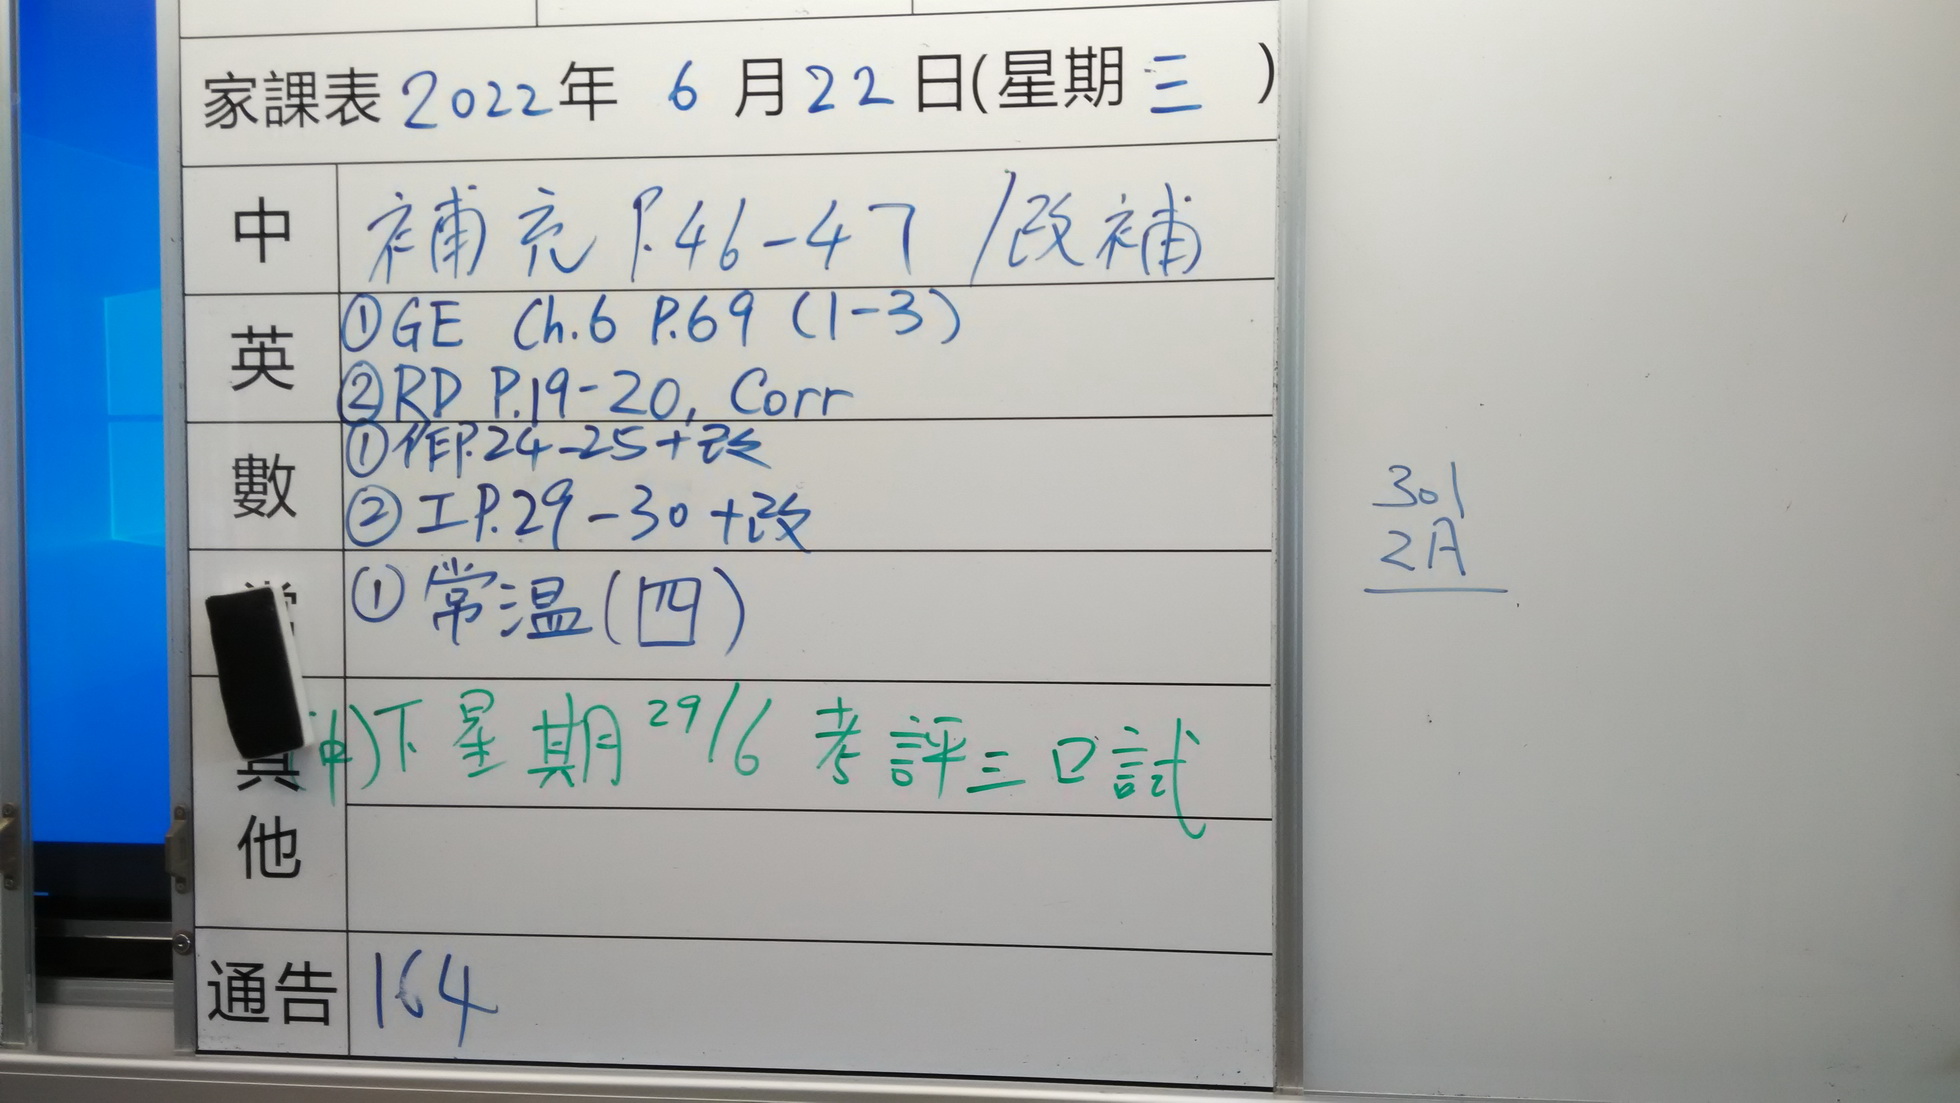 家課表 2022年 6月22日(星期三)
中 補充 P.46-47 /改補
英 ①GE Ch.6 P.69 (1-3)
②RD P.19-20, Corr
數 ①作P.24-25+改
②工P.29-30+改
常 ①常温(四)
其他 (中)下星期29/6考評三口試
通告 164
301
2A